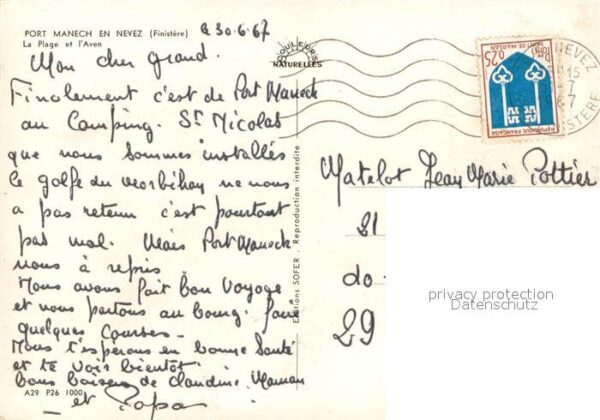 PORT MANECH EN NEVEZ (Finistère)
La Plage et l'Aven
le 30-6-67
COULEURS NATURELLES
Mon cher grand.
Finalement c'est de Port Maneck
au Camping. St Nicolas
que nous sommes installés
le golfe du morbihan ne nous
a pas retenu c'est pourtant
pas mal. Mais Port Maneck
nous à repris
Nous avons fait bon voyage
et nous partons au bourg. faire
quelques courses-
Nous t'espérons en bonne santé
et te voir bientôt
bons baisers de Claudine, Maman
et Papa
A29 P26 1000
Editions SOFER - Reproduction interdite
NEVEZ
15
7
FINISTERE
0,25
Postes
MONT-DE-MARSAN
REPUBLIQUE FRANÇAISE
Matelot Jean Marie Pottier
21
do
29
privacy protection
Datenschutz